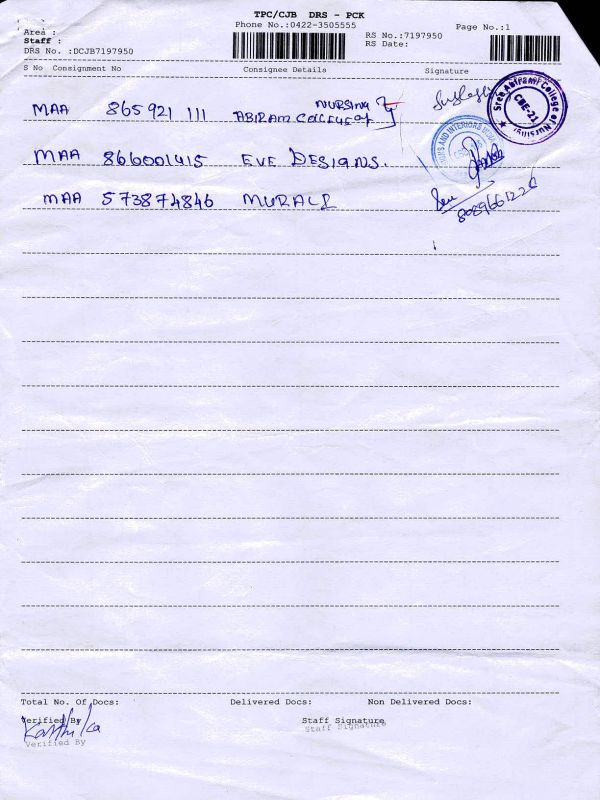 TPC/CJB DRS - PCK
Phone No.:0422-3505555
Page No.:1
Area :
Staff :
RS No.:7197950
RS Date:
DRS No. :DCJB7197950
S No Consignment No Consignee Details Signature
MAA 865921 111 ABIRAM COLLEGE OF NURSING
Sree Abirami College of Nursing
CBE-21
MAA 866001415 EVE DESIGNS.
MAA 573874846 MURALI
8089661226
Total No. Of Docs: Delivered Docs: Non Delivered Docs:
Verified By Staff Signature
Karthika Staff Signature
Verified By